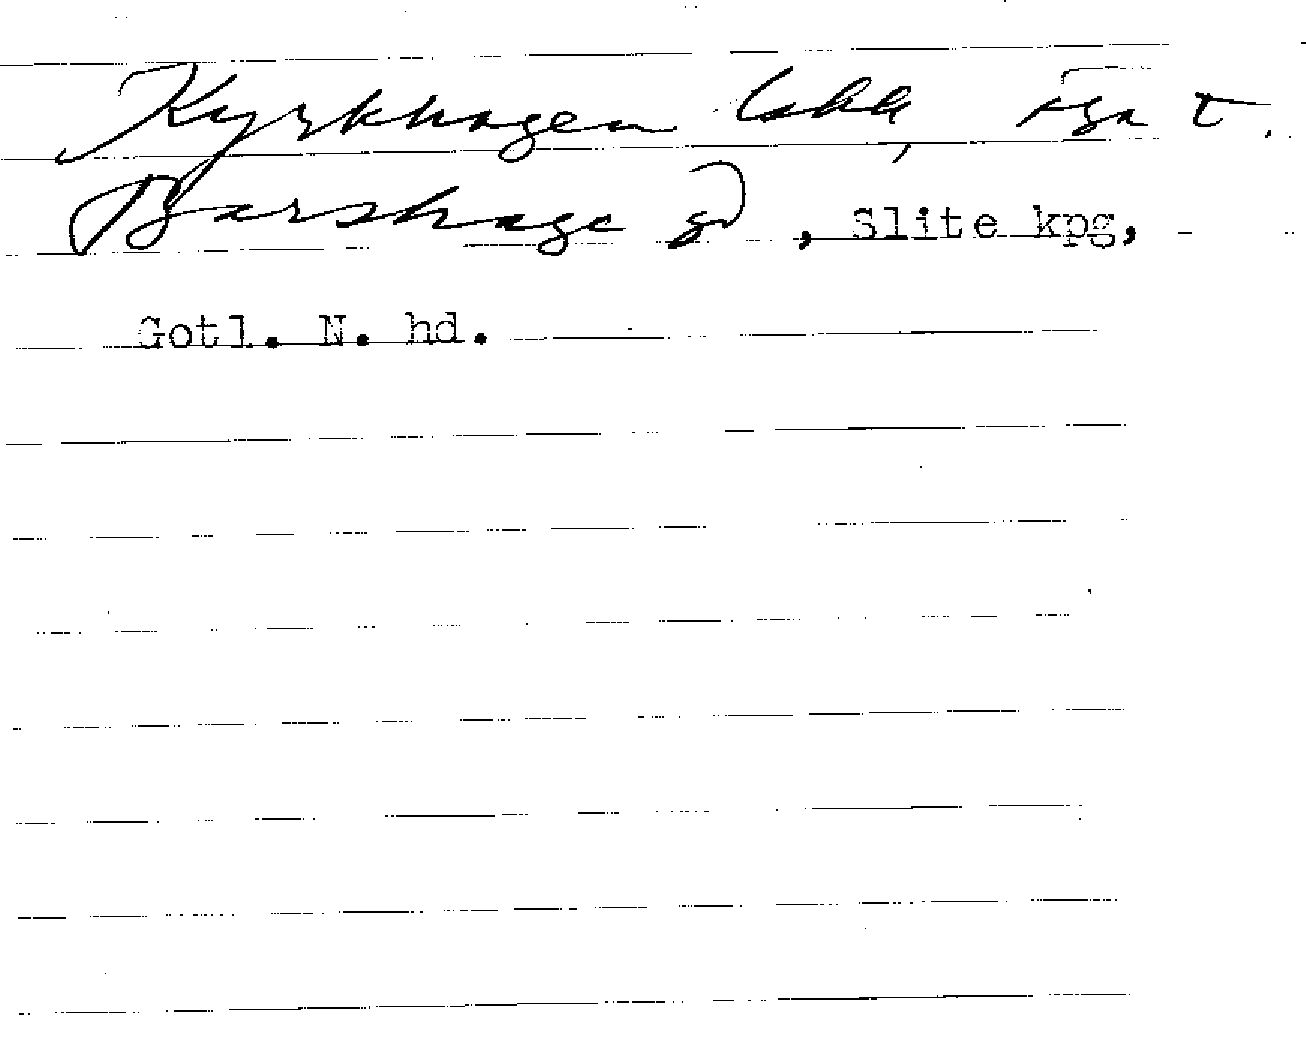 Kyrkhagen
Barshage gd, Slite kpg,
Gotl. N. hd.